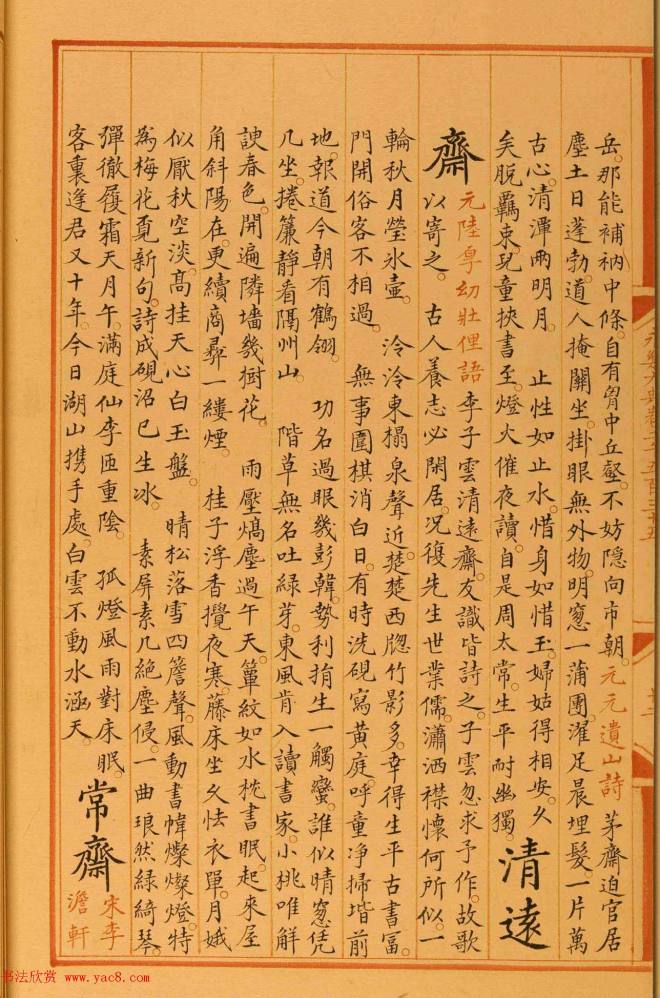 岳。那能補衲中條。自有胷中丘壑。不妨隱向市朝。元元遺山詩 茅齋迫官居
塵土日蓬勃。道人掩關坐。掛眼無外物。明窻一蒲團。濯足晨埋髮。一片萬
古心。清渾兩明月。 止性如止水。惜身如惜玉。婦姑得相安。久
矣脫羈束。兒童挾書至。燈火催夜讀。自是周太常。生平耐幽獨。
清遠
齋
元陸厚幼壯俚語 李子雲清遠齋。友識皆詩之。子雲忽求予作。故歌
以寄之。 古人養志必閑居。况復先生世業儒。瀟洒襟懷何所似。一
輪秋月瑩氷壺。 泠泠東榻泉聲近。楚楚西牎竹影多。幸得生平古書冨
門開俗客不相過。 無事圍棋消白日。有時洗硯寫黃庭。呼童净掃堦前
地。報道今朝有鶴翎。 功名過眼幾彭韓。勢利捐生一觸蠻。誰似晴窻凭
几坐。捲簾靜看隔州山。 階草無名吐緑芽。東風肯入讀書家。小桃唯解
諛春色。開遍隣墻幾樹花。 雨壓熇塵過午天。簟紋如水枕書眠。起來屋
角斜陽在。更續商彛一縷煙。 桂子浮香攪夜寒。藤床坐久怯衣單。月娥
似厭秋空淡。髙挂天心白玉盤。 晴松落雪四簷聲。風動書幃燦燦燈。特
為梅花覔新句。詩成硯沼已生冰。 素屏素几絶塵侵。一曲琅然緑綺琴。
彈徹履霜天月午。滿庭仙李匝重陰。 孤燈風雨對床眠。
客裏逢君又十年。今日湖山携手處。白雲不動水涵天。
常齋
宋李
澹軒
书法欣赏 www.yac8.com